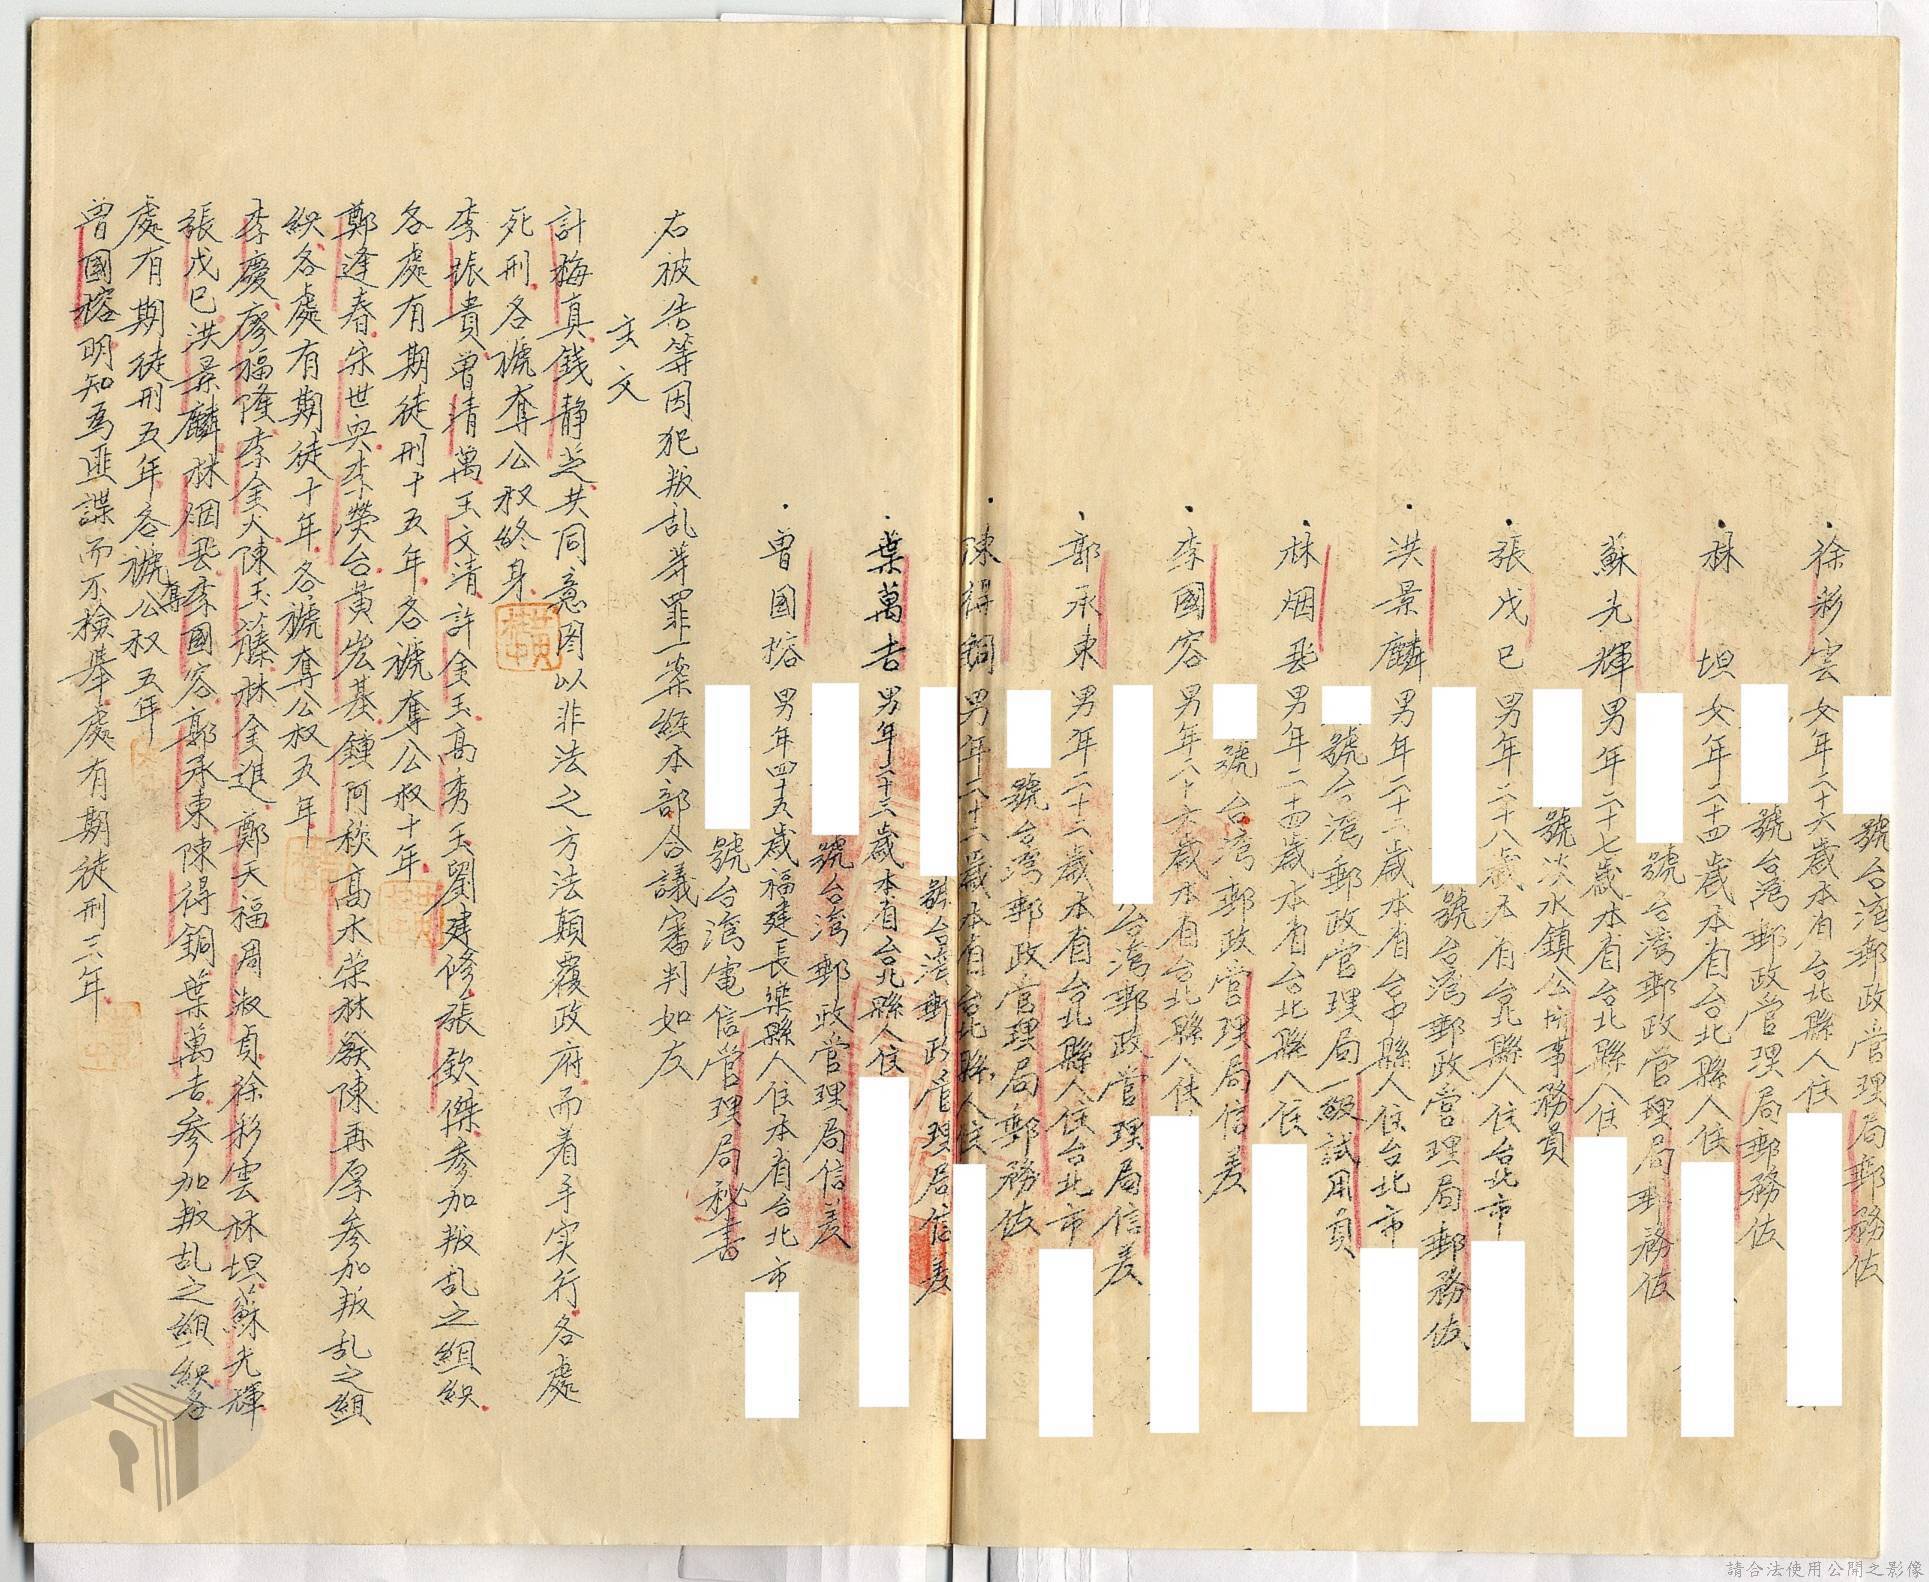 徐彩雲女年二十六歲本省台北縣人住
號台灣郵政管理局郵務佐
林坦女年二十四歲本省台北縣人住
號台灣郵政管理局郵務佐
蘇光輝男年二十七歲本省台北縣人住
號台灣郵政管理局郵務佐
張戊巳男年二十八歲本省台北縣人住台北市
號淡水鎮公所事務員
洪景麟男年二十二歲本省台中縣人住台北市
號台灣郵政管理局郵務佐
林烟飛男年二十四歲本省台北縣人住
號台灣郵政管理局一級試用員
李國容男年二十六歲本省台北縣人住
號台灣郵政管理局信差
郭承東男年二十二歲本省台北縣人住台北市
台灣郵政管理局信差
陳得銅男年二十二歲本省台北縣人住
號台灣郵政管理局郵務佐
葉萬吉男年二十三歲本省台北縣人住
號台灣郵政管理局信差
曾國榕男年四十五歲福建長樂縣人住本省台北市
號台灣郵政管理局信差
號台灣電信管理局秘書
右被告等因犯叛乱等罪一案經本部合議審判如左
主文
計梅真錢静芝共同意图以非法之方法顛覆政府而着手实行各處
死刑各褫奪公权終身
李振貴曾清萬王文清許金玉高秀玉劉建修張欽傑參加叛乱之組织
各處有期徒刑十五年各褫奪公权十年
鄭逢春宋世兴李熒台黃宏基鍾阿秾高水荣林發陳再厚參加叛乱之組
织各處有期徒十年各褫奪公权五年
李慶廖福隆李金火陳玉藤林金進鄭天福周淑貞徐彩雲林坦蘇光輝
張戊巳洪景麟林烟飛李國容郭承東陳得銅葉萬吉參加叛乱之組织各
處有期徒刑五年各褫奪公权五年
曾國榕明知為匪諜而不檢舉處有期徒刑三年
請合法使用公開之影像